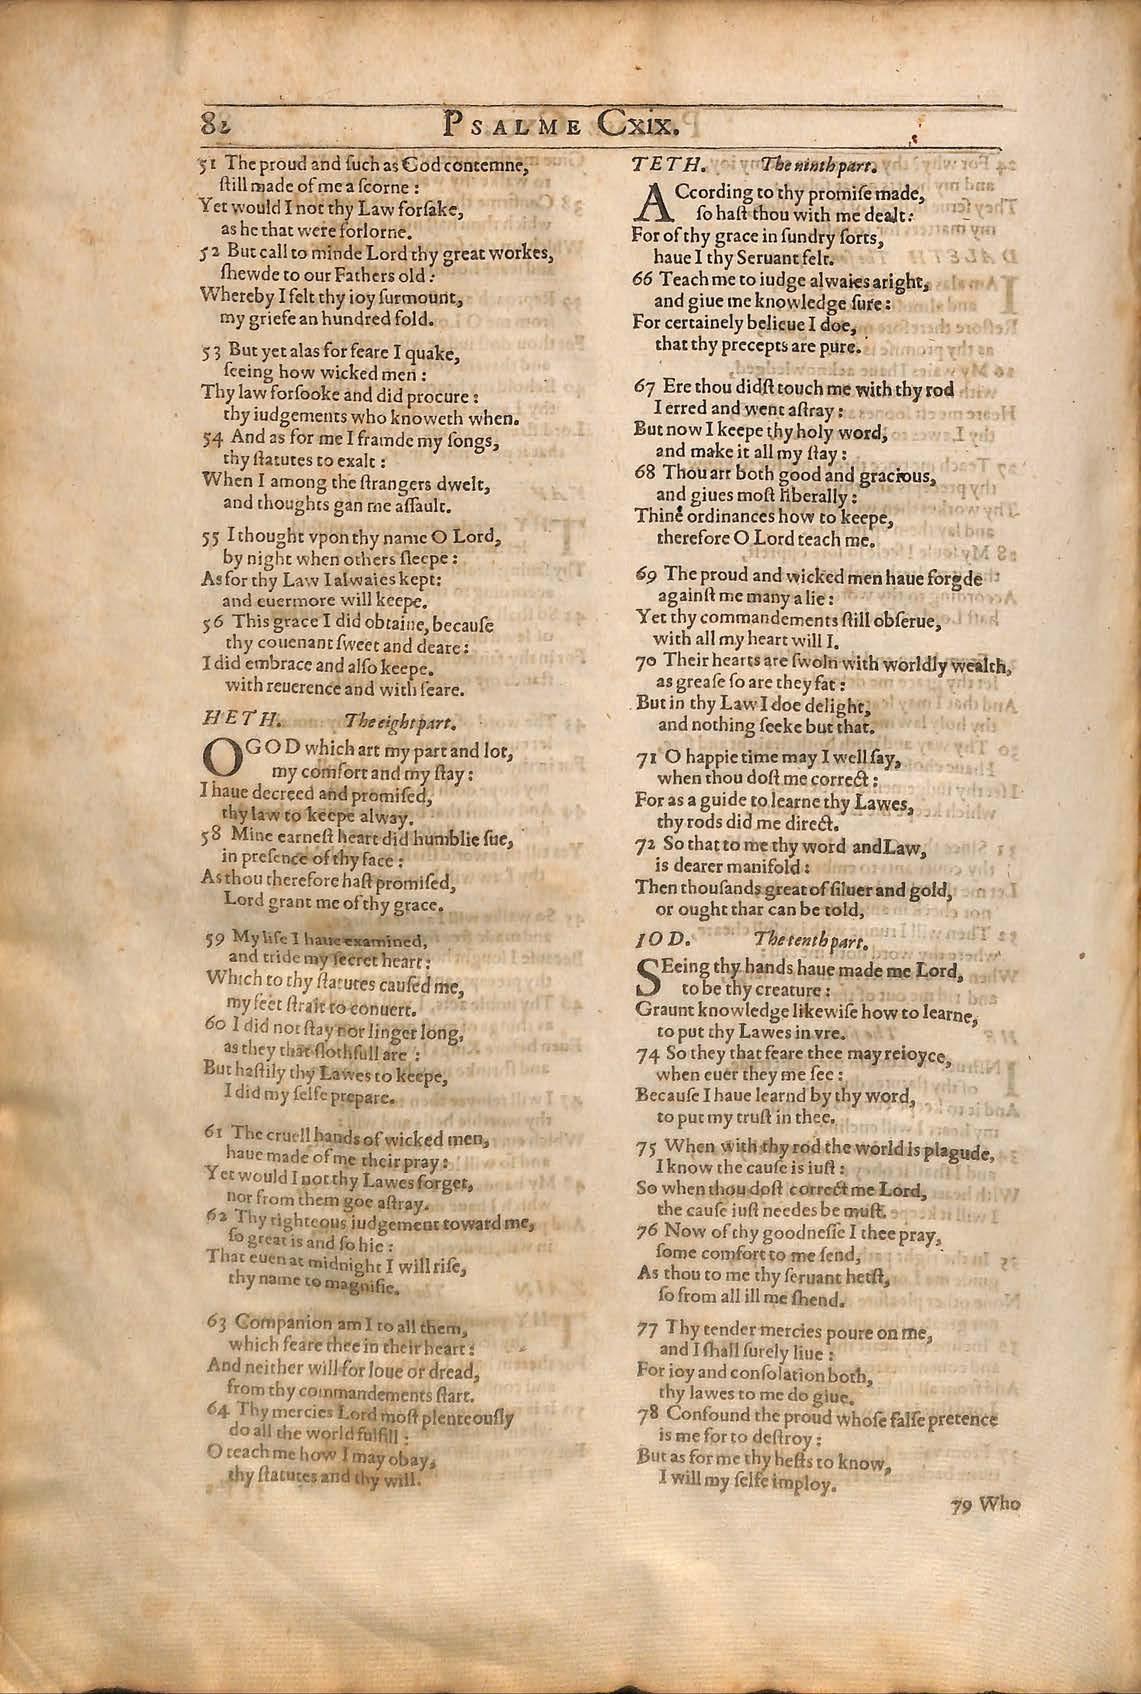 82 PSALME Cxix.
51 The proud and ſuch as God contemne,
ſtill made of me a ſcorne :
Yet would I not thy Law forſake,
as he that were forlorne.
52 But call to minde Lord thy great workes,
ſhewde to our Fathers old :
Whereby I felt thy ioy ſurmount,
my griefe an hundred fold.
53 But yet alas for feare I quake,
ſeeing how wicked men :
Thy law forſooke and did procure :
thy iudgements who knoweth when.
54 And as for me I framde my ſongs,
thy ſtatutes to exalt :
When I among the ſtrangers dwelt,
and thoughts gan me aſſault.
55 I thought vpon thy name O Lord,
by night when others ſleepe :
As for thy Law I alwaies kept:
and euermore will keepe.
56 This grace I did obtaine, becauſe
thy couenant ſweet and deare:
I did embrace and alſo keepe.
with reuerence and with feare.
HETH. The eight part.
O GOD which art my part and lot,
my comfort and my ſtay :
I haue decreed and promiſed,
thy law to keepe alway.
58 Mine earneſt heart did humblie ſue,
in preſence of thy face :
As thou therefore haſt promiſed,
Lord grant me of thy grace.
59 My life I haue examined,
and tride my ſecret heart:
Which to thy ſtatutes cauſed me,
my feet ſtrait to conuert.
60 I did not ſtay nor linger long,
as they that ſlothfull are :
But haſtily thy Lawes to keepe,
I did my ſelfe prepare.
61 The cruell hands of wicked men,
haue made of me their pray :
Yet would I not thy Lawes forget,
nor from them goe aſtray.
62 Thy righteous iudgement toward me,
ſo great is and ſo hie :
That euen at midnight I will riſe,
thy name to magnifie.
63 Companion am I to all them,
which feare thee in their heart :
And neither will for loue or dread,
from thy commandements ſtart.
64 Thy mercies Lord moſt plenteouſly
do all the world fulfill :
O teach me how I may obay,
thy ſtatutes and thy will.
TETH. The ninth part.
ACcording to thy promiſe made,
ſo haſt thou with me dealt:
For of thy grace in ſundry ſorts,
haue I thy Seruant felt.
66 Teach me to iudge alwaies aright,
and giue me knowledge ſure :
For certainely belieue I doe,
that thy precepts are pure.
67 Ere thou didſt touch me with thy rod
I erred and went aſtray :
But now I keepe thy holy word,
and make it all my ſtay :
68 Thou art both good and gracious,
and giues moſt liberally :
Thine ordinances how to keepe,
therefore O Lord teach me.
69 The proud and wicked men haue forgde
againſt me many a lie :
Yet thy commandements ſtill obſerue,
with all my heart will I.
70 Their hearts are ſwoln with worldly wealth,
as greaſe ſo are they fat :
But in thy Law I doe delight,
and nothing ſeeke but that.
71 O happie time may I well ſay,
when thou doſt me correct :
For as a guide to learne thy Lawes,
thy rods did me direct.
72 So that to me thy word and Law,
is dearer manifold :
Then thouſands great of ſiluer and gold,
or ought thar can be told,
IOD. The tenth part.
SEeing thy hands haue made me Lord,
to be thy creature :
Graunt knowledge likewiſe how to learne,
to put thy Lawes in vre.
74 So they that feare thee may reioyce,
when euer they me ſee :
Becauſe I haue learnd by thy word,
to put my truſt in thee.
75 When with thy rod the world is plagude,
I know the cauſe is iuſt :
So when thou doſt correct me Lord,
the cauſe iuſt needes be muſt.
76 Now of thy goodneſſe I thee pray,
ſome comfort to me ſend,
As thou to me thy ſeruant hetſt,
ſo from all ill me ſhend.
77 Thy tender mercies poure on me,
and I ſhall ſurely liue :
For ioy and conſolation both,
thy lawes to me do giue.
78 Confound the proud whoſe falſe pretence
is me for to deſtroy :
But as for me thy heſts to know,
I will my ſelfe imploy.
79 Who